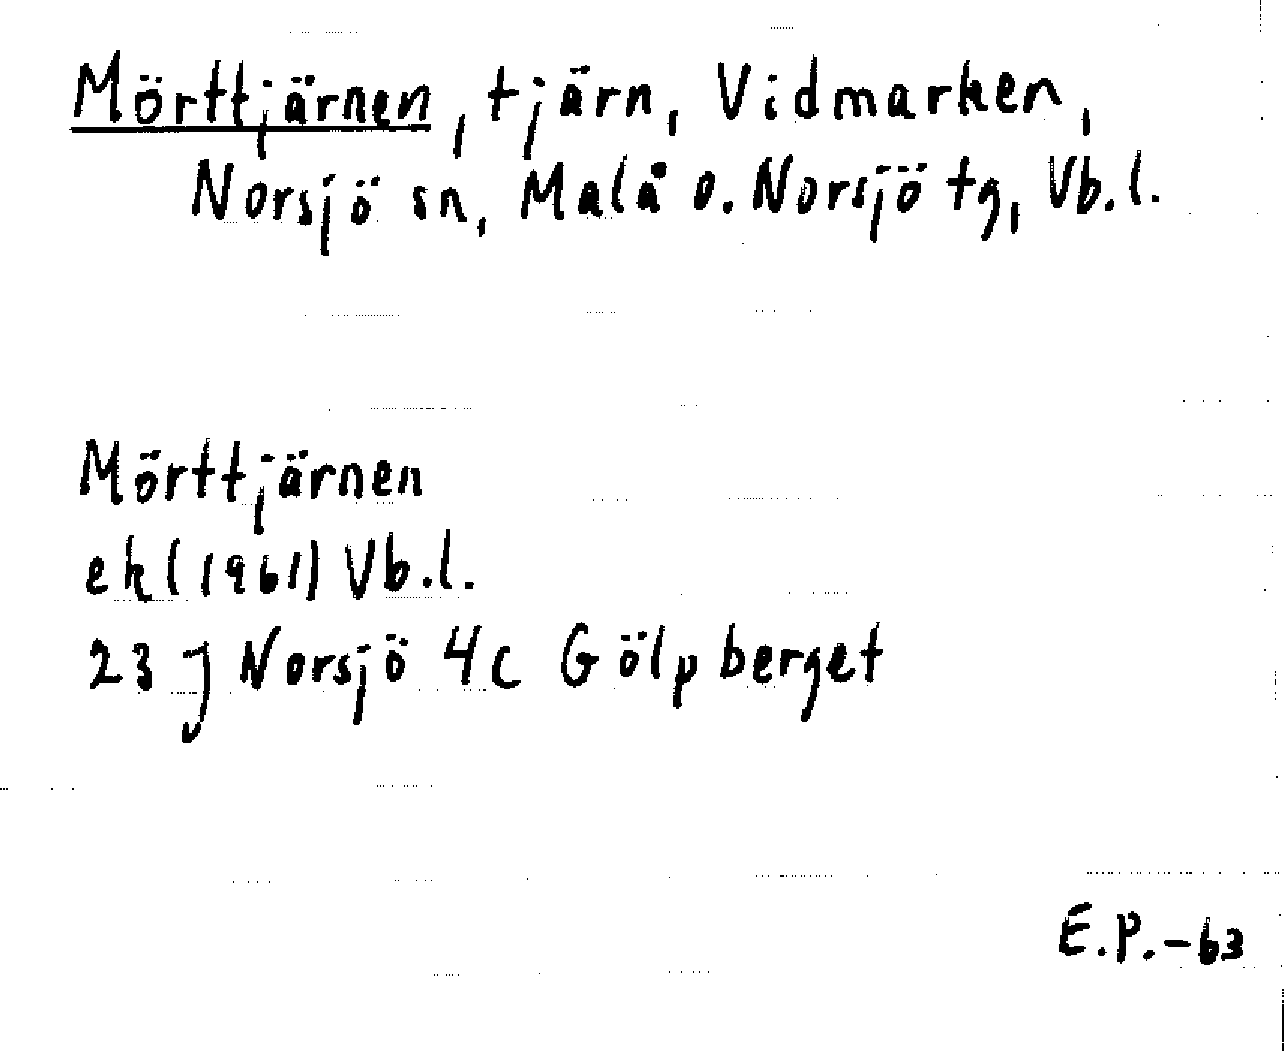 Mörttjärnen, tjärn, Vidmarken,
Norsjö sn, Malå o. Norsjö tg, Vb.l.
Mörttjärnen
ek (1961) Vb.l.
23 J Norsjö 4c Gölpberget
E.P.-63